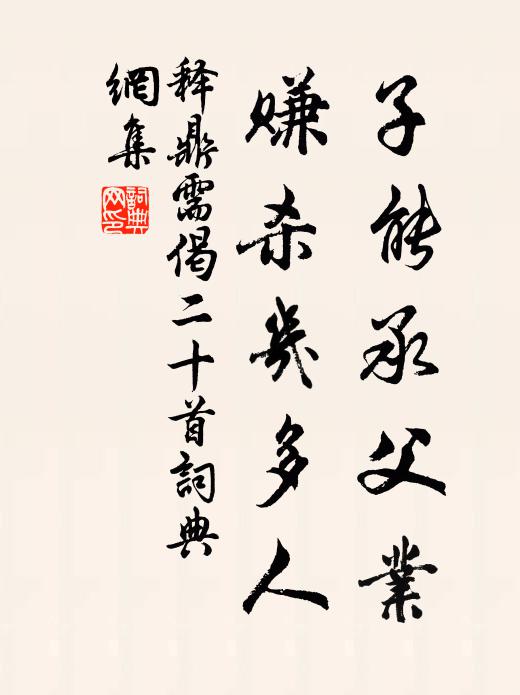 子能承父業
赚杀幾多人
释鼎需偈二十首詞典
網集
詞典
网印